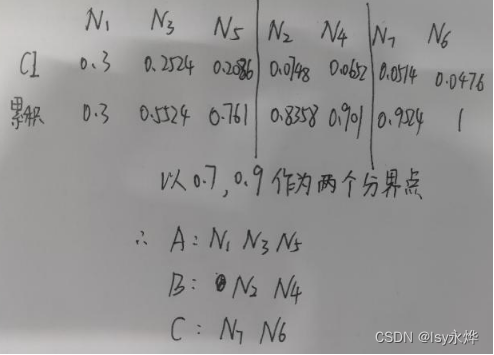 N₁ N₃ N₅ N₂ N₄ N₇ N₆
CI 0.3 0.2524 0.2086 0.0748 0.0652 0.0514 0.0476
累积 0.3 0.5524 0.761 0.8358 0.901 0.9524 1
以0.7,0.9作为两个分界点
∴ A: N₁ N₃ N₅
B: N₂ N₄
C: N₇ N₆
CSDN @lsy永烨